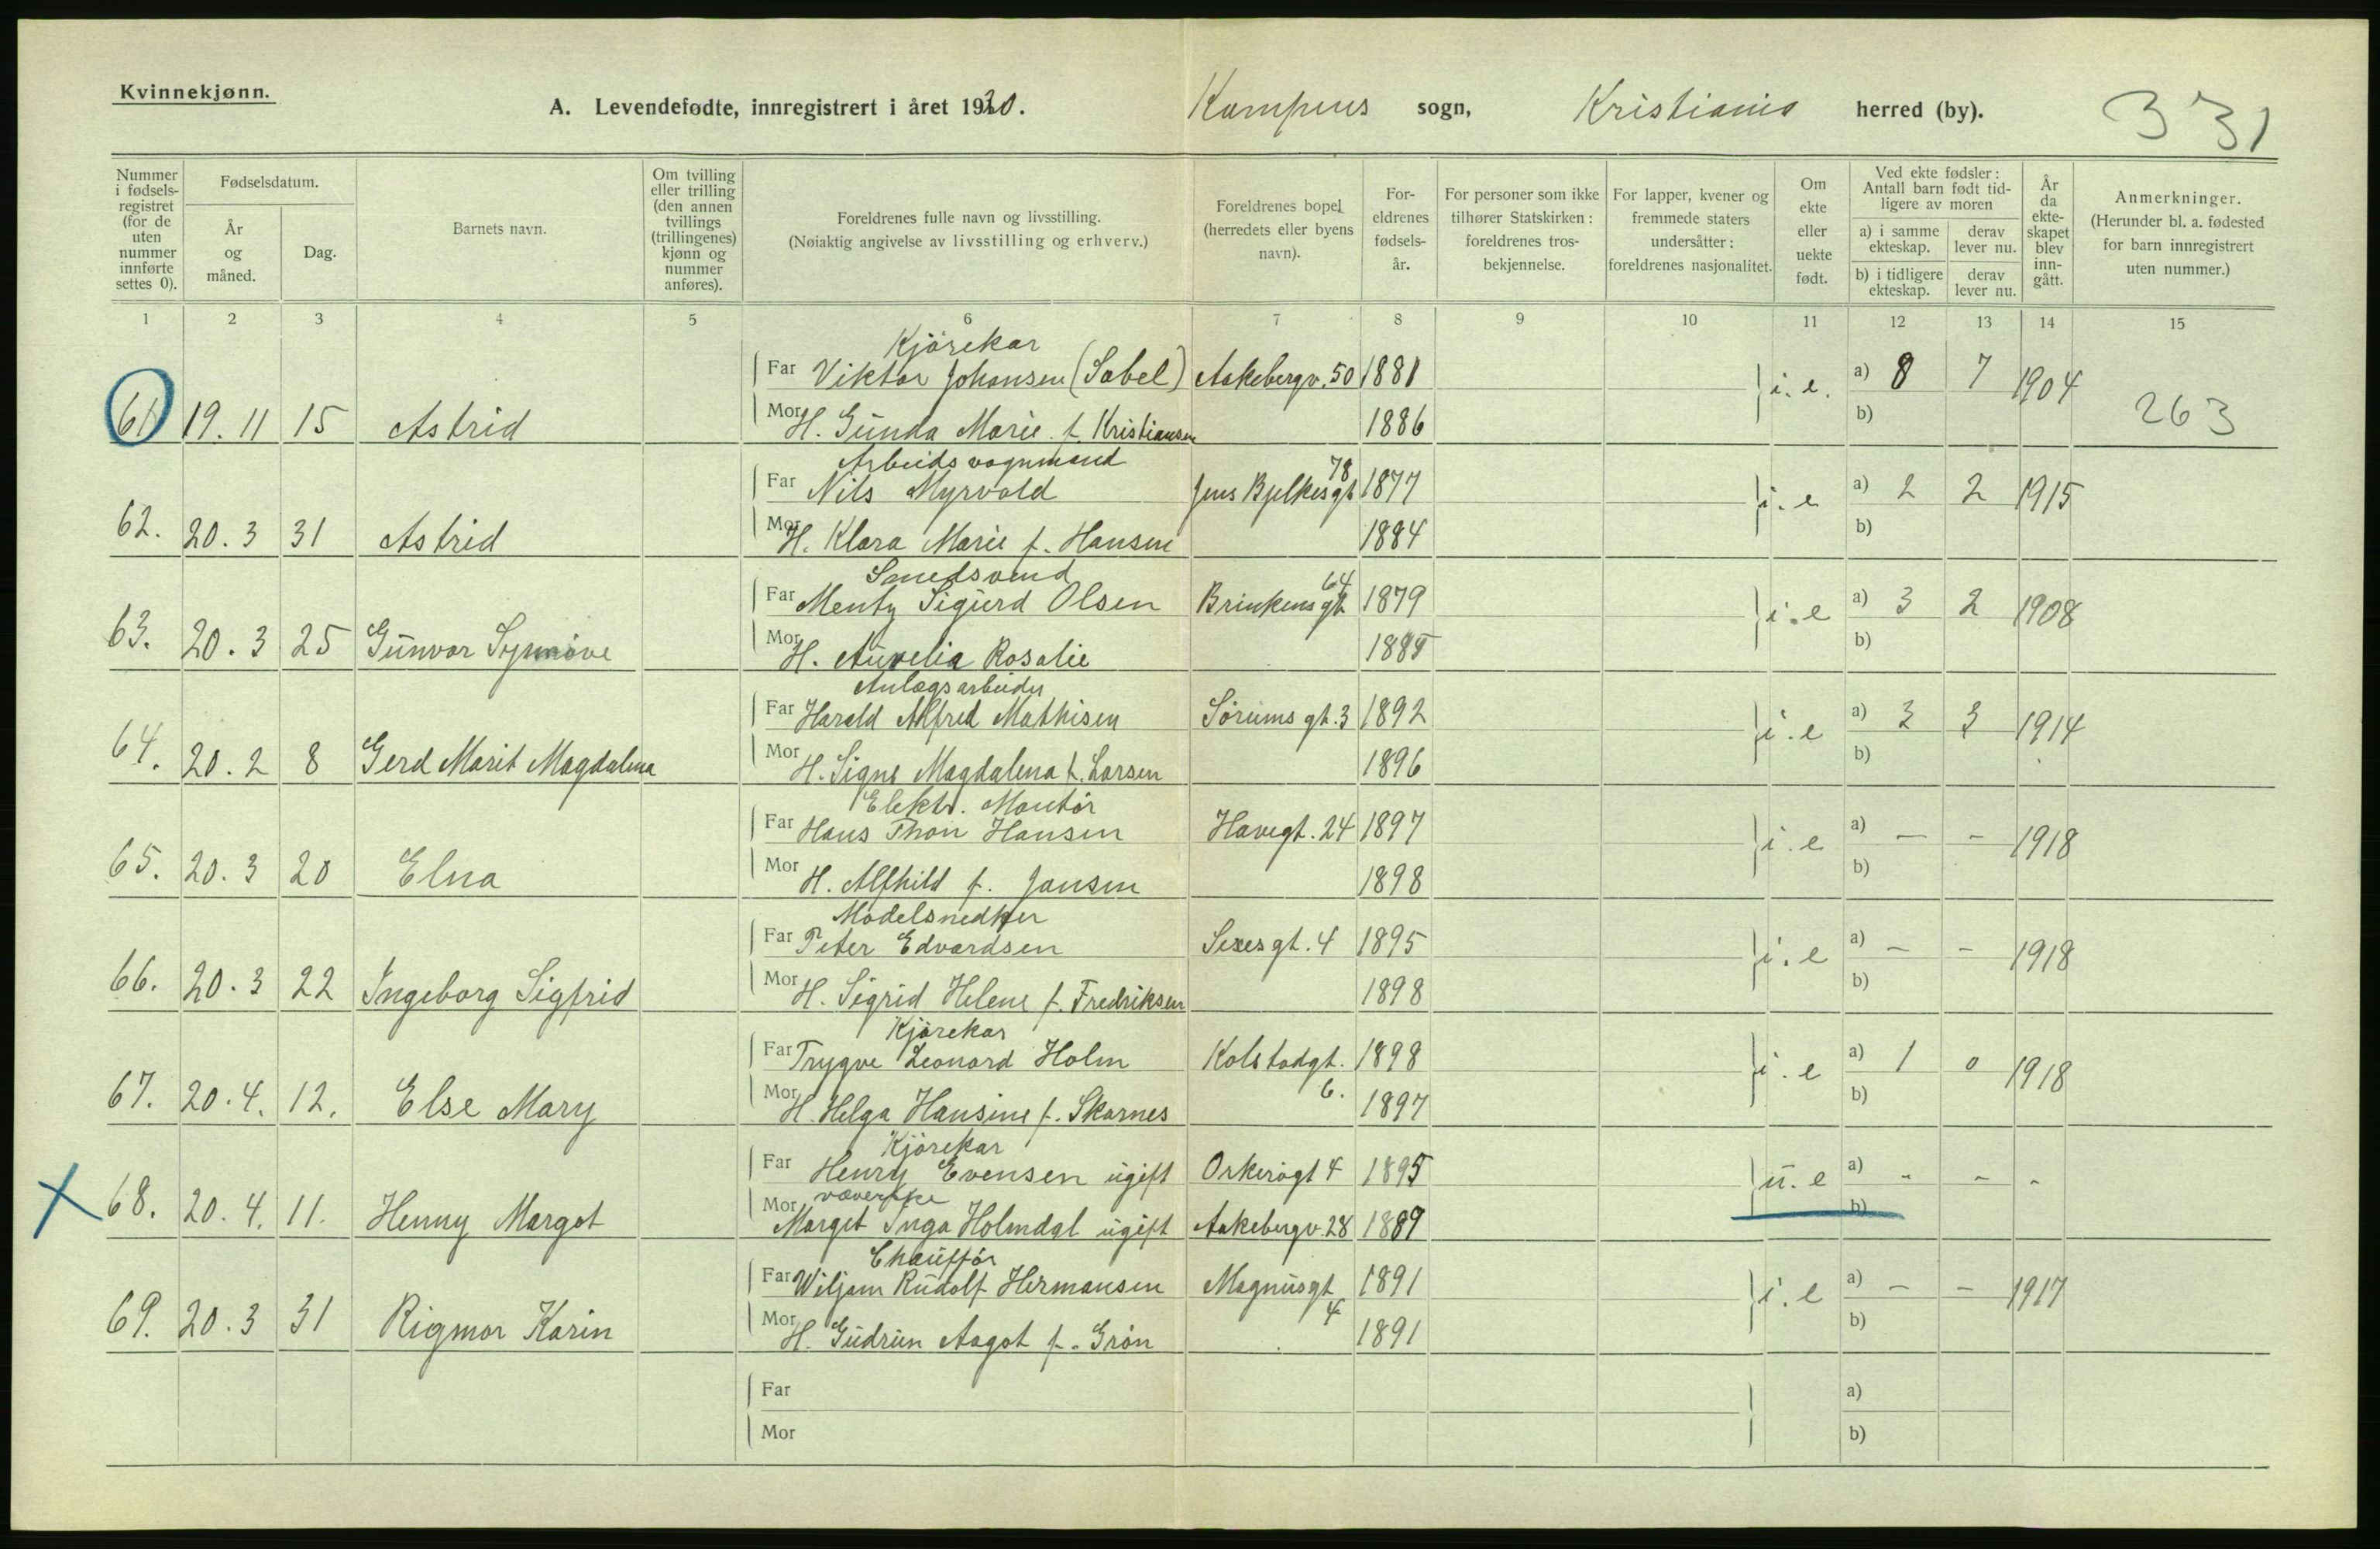 Kvinnekjønn.
A. Levendefødte, innregistrert i året 1920. Kampens sogn, Kristiania herred (by). 331
Nummer i fødsels-registret (for de uten nummer innførte settes 0).
Fødselsdatum.
År og måned.
Dag.
Barnets navn.
Om tvilling eller trilling (den annen tvillings (trillingenes) kjønn og nummer anføres).
Foreldrenes fulle navn og livsstilling.
(Nøiaktig angivelse av livsstilling og erhverv.)
Foreldrenes bopel (herredets eller byens navn).
For-eldrenes fødsels-år.
For personer som ikke tilhører Statskirken: foreldrenes tros-bekjennelse.
For lapper, kvener og fremmede staters undersåtter: foreldrenes nasjonalitet.
Om ekte eller uekte født.
Ved ekte fødsler: Antall barn født tid-ligere av moren
a) i samme ekteskap.
derav lever nu.
b) i tidligere ekteskap.
derav lever nu.
År da ekte-skapet blev inn-gått.
Anmerkninger.
(Herunder bl. a. fødested for barn innregistrert uten nummer.)
1 2 3 4 5 6 7 8 9 10 11 12 13 14 15
Kjørekar
Far Viktor Johansen (Sabel) Aakebergv. 50 1881 i. e. a) 8 7 1904
61 19. 11 15 Astrid Mor H. Gunda Marie f. Kristiansen 1886 b) 263
Arbeidsvognmand
Far Nils Myrvold Jens Bjelkesgt 78 1877 i. e a) 2 2 1915
62. 20. 3 31 Astrid Mor H. Klara Marie f. Hansen 1884 b)
Smedsvend
Far Mentz Sigurd Olsen Brinkens gt. 64 1879 i. e a) 3 2 1908
63. 20. 3 25 Gunvor Synnøve Mor H. Aurelia Rosalie 1885 b)
Anlægsarbeider
Far Harald Alfred Mathisen Sørums gt. 3 1892 i. e a) 3 3 1914
64. 20. 2 8 Gerd Marit Magdalena Mor H. Signe Magdalena f. Larsen 1896 b)
Elektr. Montør
Far Hans Thon Hansen Havegt. 24 1897 i. e a) — - 1918
65. 20. 3 20 Elna Mor H. Alfhild f. Jansen 1898 b)
Modelsnedker
Far Peter Edvardsen Sexesgt. 4 1895 i. e a) - - 1918
66. 20. 3 22 Ingeborg Sigfrid Mor H. Sigrid Helene f. Fredriksen 1898 b)
Kjørekar
Far Trygve Leonard Holm Kolstadgt. 6. 1898 i. e a) 1 0 1918
67. 20. 4. 12. Else Mary Mor H. Helga Hansine f. Skarnes 1897 b)
Kjørekar
Far Henry Evensen ugift Orkerøgt 4 1895 u. e a) - - -
væverske
68. 20. 4. 11. Henny Margot Mor Margit Inga Holmdal ugift Aakebergv. 28 1889 b)
Chauffør
Far Wiljam Rudolf Hermansen Magnusgt 4 1891 i. e a) - - 1917
69. 20. 3 31 Rigmor Karin Mor H. Gudrun Aagot f. Grøn 1891 b)
Far a)
Mor b)